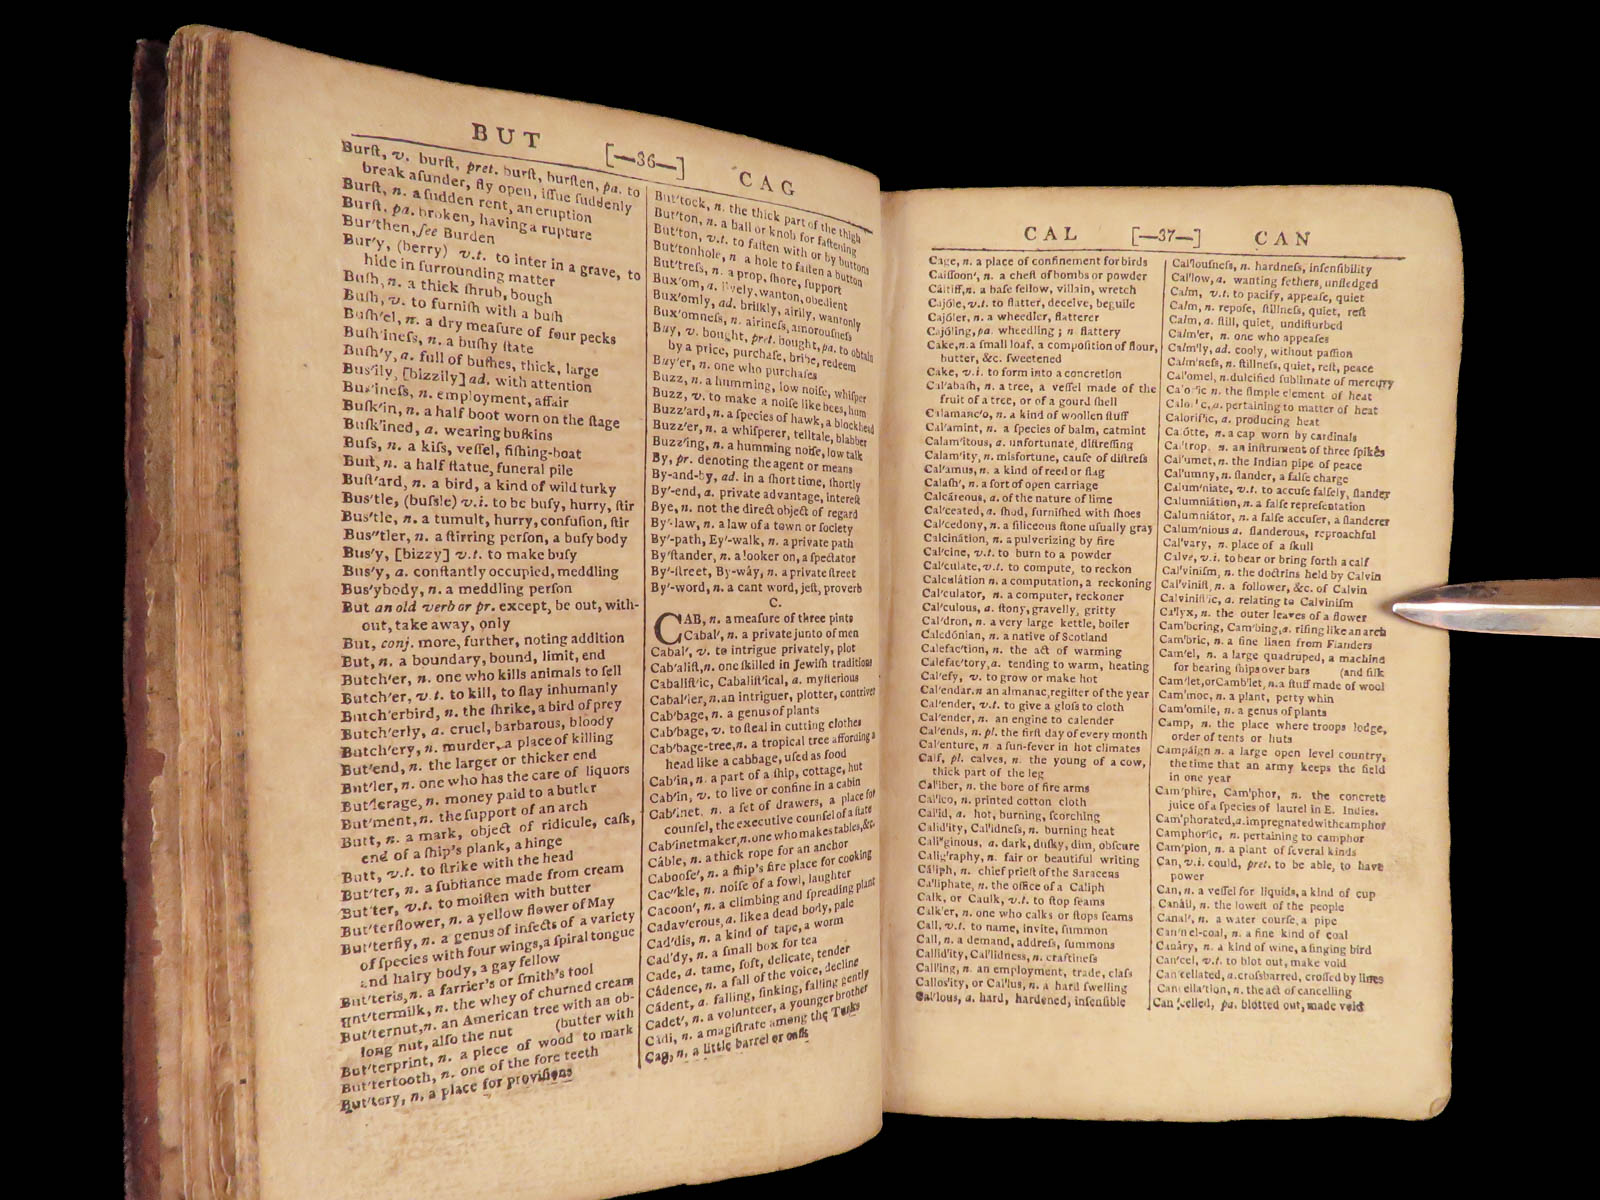 BUT [—36—] CAG
Burſt, v. burſt, pret. burſt, burſten, pa. to
break aſunder, fly open, iſſue ſuddenly
Burſt, n. a ſudden rent, an eruption
Burſt, pa. broken, having a rupture
Bur'then, ſee Burden
Bur'y, (berry) v.t. to inter in a grave, to
hide in ſurrounding matter
Buſh, n. a thick ſhrub, bough
Buſh, v. to furniſh with a buſh
Buſh'el, n. a dry meaſure of four pecks
Buſh'ineſs, n. a buſhy ſtate
Buſh'y, a. full of buſhes, thick, large
Bus'ily, [bizzily] ad. with attention
Bus'ineſs, n. employment, affair
Buſk'in, n. a half boot worn on the ſtage
Buſk'ined, a. wearing buſkins
Buſs, n. a kiſs, veſſel, fiſhing-boat
Buſt, n. a half ſtatue, funeral pile
Buſt'ard, n. a bird, a kind of wild turky
Bus'tle, (buſsle) v.i. to be buſy, hurry, ſtir
Bus'tle, n. a tumult, hurry, confuſion, ſtir
Bus"tler, n. a ſtirring perſon, a buſy body
Bus'y, [bizzy] v.t. to make buſy
Bus'y, a. conſtantly occupied, meddling
Bus'ybody, n. a meddling perſon
But an old verb or pr. except, be out, with-
out, take away, only
But, conj. more, further, noting addition
But, n. a boundary, bound, limit, end
Butch'er, n. one who kills animals to ſell
Butch'er, v.t. to kill, to ſlay inhumanly
Butch'erbird, n. the ſhrike, a bird of prey
Butch'erly, a. cruel, barbarous, bloody
Butch'ery, n. murder, a place of killing
But'end, n. the larger or thicker end
But'ler, n. one who has the care of liquors
But'lerage, n. money paid to a butler
But'ment, n. the ſupport of an arch
Butt, n. a mark, object of ridicule, caſk,
end of a ſhip's plank, a hinge
Butt, v.t. to ſtrike with the head
But'ter, n. a ſubſtance made from cream
But'ter, v.t. to moiſten with butter
But'terflower, n. a yellow flower of May
But'terfly, n. a genus of inſects of a variety
of ſpecies with four wings, a ſpiral tongue
and hairy body, a gay fellow
But'teris, n. a farrier's or ſmith's tool
But'termilk, n. the whey of churned cream
But'ternut, n. an American tree with an ob-
long nut, alſo the nut (butter with
But'terprint, n. a piece of wood to mark
But'tertooth, n. one of the fore teeth
But'tery, n. a place for proviſions
But'tock, n. the thick part of the thigh
But'ton, n. a ball or knob for faſtening
But'ton, v.t. to faſten with or by buttons
But'tonhole, n a hole to faſten a button
But'treſs, n. a prop, ſhore, ſupport
Bux'om, a. lively, wanton, obedient
Bux'omly, ad. briſkly, airily, wantonly
Bux'omneſs, n. airineſs, amorouſneſs
Buy, v. bought, pret. bought, pa. to obtain
by a price, purchaſe, bribe, redeem
Buy'er, n. one who purchaſes
Buzz, n. a humming, low noiſe, whiſper
Buzz, v. to make a noiſe like bees, hum
Buzz'ard, n. a ſpecies of hawk, a blockhead
Buzz'er, n. a whiſperer, telltale, blabber
Buzz'ing, n. a humming noiſe, low talk
By, pr. denoting the agent or means
By-and-by, ad. in a ſhort time, ſhortly
By'-end, a. private advantage, intereſt
Bye, n. not the direct object of regard
By'-law, n. a law of a town or ſociety
By'-path, Ey'-walk, n. a private path
By'ſtander, n. a looker on, a ſpectator
By'-ſtreet, By-wày, n. a private ſtreet
By'-word, n. a cant word, jeſt, proverb
C.
CAB, n. a meaſure of three pints
Cabal', n. a private junto of men
Cabal', v. to intrigue privately, plot
Cab'aliſt, n. one ſkilled in Jewiſh traditions
Cabaliſt'ic, Cabaliſt'ical, a. myſterious
Cabal'ler, n. an intriguer, plotter, contriver
Cab'bage, n. a genus of plants
Cab'bage, v. to ſteal in cutting clothes
Cab'bage-tree, n. a tropical tree affording a
head like a cabbage, uſed as food
Cab'in, n. a part of a ſhip, cottage, hut
Cab'in, v. to live or confine in a cabin
Cab'inet, n. a ſet of drawers, a place for
counſel, the executive counſel of a ſtate
Cab'inetmaker, n. one who makes tables, &c.
Càble, n. a thick rope for an anchor
Cabooſe', n. a ſhip's fire place for cooking
Cac"kle, n. noiſe of a fowl, laughter
Cacoon', n. a climbing and ſpreading plant
Cadav'erous, a. like a dead body, pale
Cad'dis, n. a kind of tape, a worm
Cad'dy, n. a ſmall box for tea
Cade, a. tame, ſoft, delicate, tender
Càdence, n. a fall of the voice, decline
Càdent, a. falling, ſinking, falling gently
Cadet', n. a volunteer, a younger brother
Càdi, n. a magiſtrate among the Turks
Cag, n. a little barrel or caſk
CAL [—37—] CAN
Cage, n. a place of confinement for birds
Caiſſoon', n. a cheſt of bombs or powder
Càitiff, n. a baſe fellow, villain, wretch
Cajòle, v.t. to flatter, deceive, beguile
Cajòler, n. a wheedler, flatterer
Cajòling, pa. wheedling; n flattery
Cake, n. a ſmall loaf, a compoſition of flour,
butter, &c. ſweetened
Cake, v.i. to form into a concretion
Cal'abaſh, n. a tree, a veſſel made of the
fruit of a tree, or of a gourd ſhell
Calamanc'o, n. a kind of woollen ſtuff
Cal'amint, n. a ſpecies of balm, catmint
Calam'itous, a. unfortunate, diſtreſſing
Calam'ity, n. misfortune, cauſe of diſtreſs
Cal'amus, n. a kind of reed or flag
Calaſh', n. a ſort of open carriage
Calcàreous, a. of the nature of lime
Cal'ceated, a. ſhod, furniſhed with ſhoes
Cal'cedony, n. a ſiliceous ſtone uſually gray
Calcinàtion, n. a pulverizing by fire
Cal'cine, v.t. to burn to a powder
Cal'culate, v.t. to compute, to reckon
Calculàtion n. a computation, a reckoning
Cal'culator, n. a computer, reckoner
Cal'culous, a. ſtony, gravelly, gritty
Cal'dron, n. a very large kettle, boiler
Caledònian, n. a native of Scotland
Calefac'tion, n. the act of warming
Calefac'tory, a. tending to warm, heating
Cal'efy, v. to grow or make hot
Cal'endar. n an almanac, regiſter of the year
Cal'ender, v.t. to give a gloſs to cloth
Cal'ender, n. an engine to calender
Cal'ends, n. pl. the firſt day of every month
Cal'enture, n a ſun-fever in hot climates
Calf, pl. calves, n. the young of a cow,
thick part of the leg
Cal'iber, n. the bore of fire arms
Cal'ico, n. printed cotton cloth
Cal'id, a. hot, burning, ſcorching
Calid'ity, Cal'idneſs, n. burning heat
Calig'inous, a. dark, duſky, dim, obſcure
Calig'raphy, n. fair or beautiful writing
Càliph, n. chief prieſt of the Saracens
Ca'liphate, n. the office of a Caliph
Calk, or Caulk, v.t. to ſtop ſeams
Calk'er, n. one who calks or ſtops ſeams
Call, v.t. to name, invite, ſummon
Call, n. a demand, addreſs, ſummons
Callid'ity, Cal'lidneſs, n. craftineſs
Call'ing, n. an employment, trade, claſs
Callos'ity, or Cal'lus, n. a hard ſwelling
Cal'lous, a. hard, hardened, inſenſible
Cal'louſneſs, n. hardneſs, inſenſibility
Cal'low, a. wanting fethers, unfledged
Calm, v.t. to pacify, appeaſe, quiet
Calm, n. repoſe, ſtillneſs, quiet, reſt
Calm, a. ſtill, quiet, undiſturbed
Calm'er, n. one who appeaſes
Calm'ly, ad. cooly, without paſſion
Calm'neſs, n. ſtillneſs, quiet, reſt, peace
Cal'omel, n. dulcified ſublimate of mercury
Calor'ic n. the ſimple element of heat
Calor'ic, a. pertaining to matter of heat
Calorif'ic, a. producing heat
Calòtte, n. a cap worn by cardinals
Cal'trop, n. an inſtrument of three ſpikes
Cal'umet, n. the Indian pipe of peace
Cal'umny, n. ſlander, a falſe charge
Calum'niate, v.t. to accuſe falſely, ſlander
Calumniàtion, n. a falſe repreſentation
Calumniátor, n. a falſe accuſer, a ſlanderer
Calum'nious a. ſlanderous, reproachful
Cal'vary, n. place of a ſkull
Calve, v.i. to bear or bring forth a calf
Cal'viniſm, n. the doctrins held by Calvin
Cal'viniſt, n. a follower, &c. of Calvin
Calviniſt'ic, a. relating to Calviniſm
Ca'lyx, n. the outer leaves of a flower
Cam'bering, Cam'bing, a. riſing like an arch
Cam'bric, n. a fine linen from Flanders
Cam'el, n. a large quadruped, a machine
for bearing ſhips over bars (and ſilk
Cam'let, or Camb'let, n. a ſtuff made of wool
Cam'moc, n. a plant, petty whin
Cam'omile, n. a genus of plants
Camp, n. the place where troops lodge,
order of tents or huts
Campáign n. a large open level country,
the time that an army keeps the field
in one year
Cam'phire, Cam'phor, n. the concrete
juice of a ſpecies of laurel in E. Indies.
Cam'phorated, a. impregnated with camphor
Camphor'ic, n. pertaining to camphor
Cam'pion, n. a plant of ſeveral kinds
Can, v.i. could, pret. to be able, to have
power
Can, n. a veſſel for liquids, a kind of cup
Canáil, n. the loweſt of the people
Canal', n. a water courſe, a pipe
Can'nel-coal, n. a fine kind of coal
Canàry, n. a kind of wine, a ſinging bird
Can'cel, v.t. to blot out, make void
Can'cellated, a. croſsbarred, croſſed by lines
Cancella'tion, n. the act of cancelling
Can'celled, pa. blotted out, made void